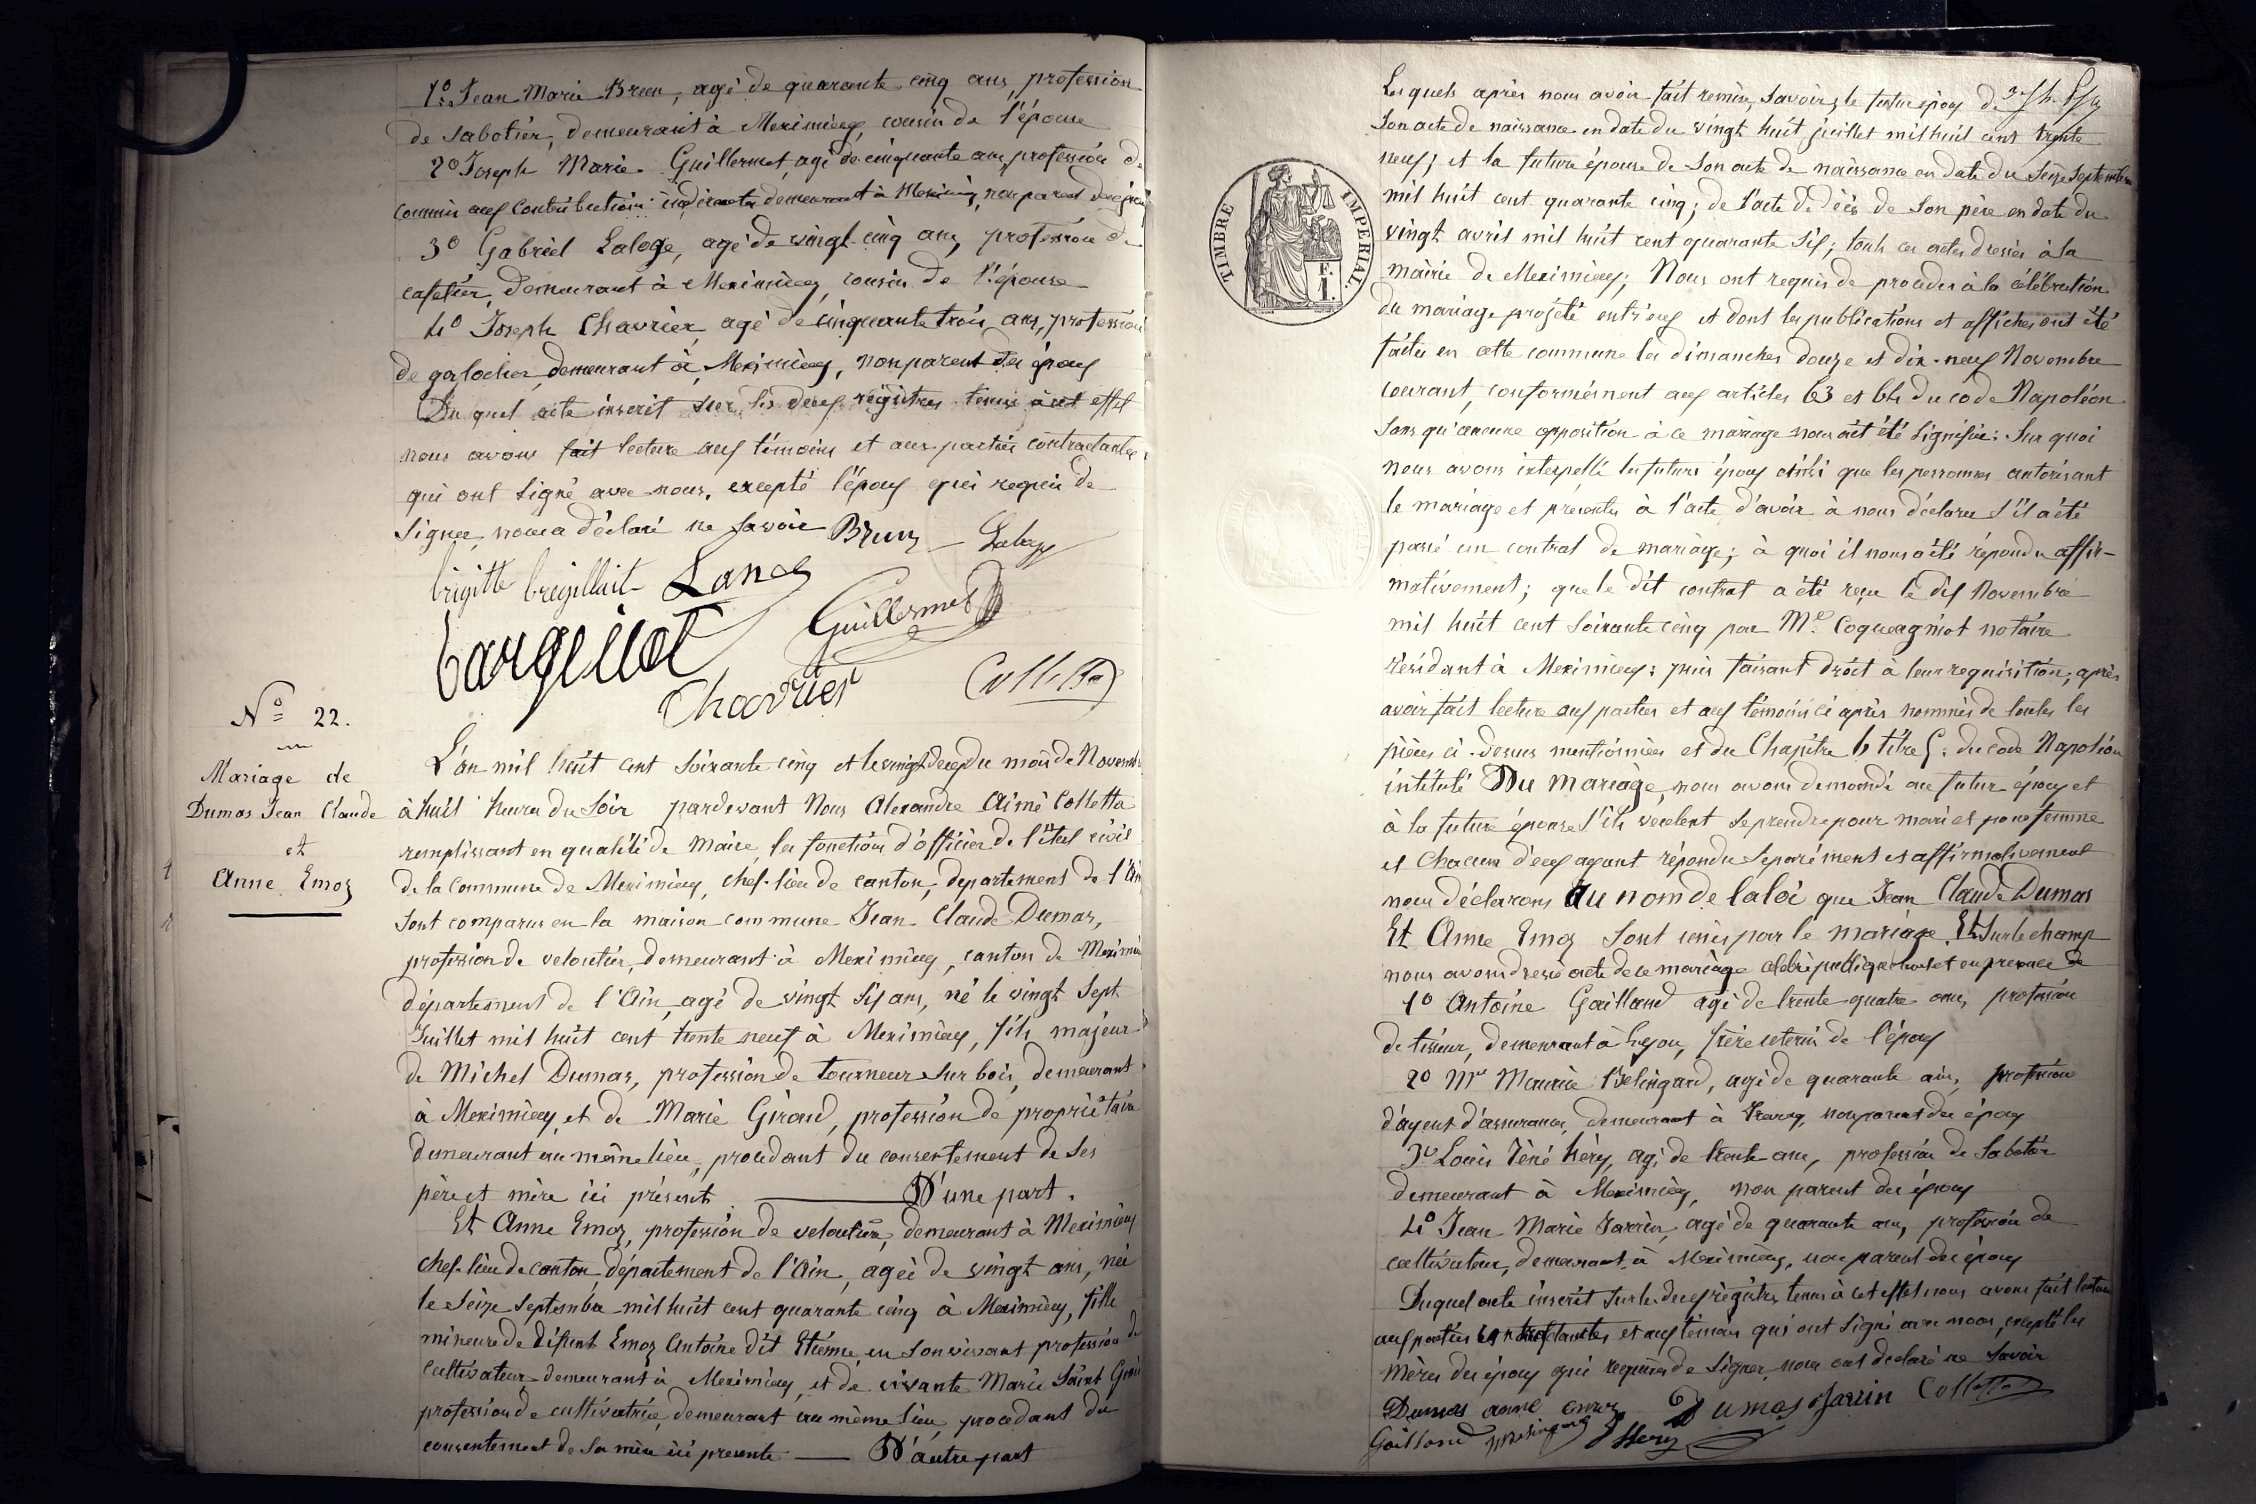 1º Jean Marie Brun, agé de quarante cinq ans, profession
de sabotier, demeurant à Meximieux, cousin de l'épouse
2º Joseph Marie Guillermet, agé de cinquante ans, profession de
commis aux contributions indirectes demeurant à Meximieux, non parent des époux
3º Gabriel Laloge, agé de vingt cinq ans, profession de
cafetier, demeurant à Meximieux, cousin de l'épouse
4º Joseph Chavrier, agé de cinquante trois ans, profession
de galochier, demeurant à Meximieux, non parent des époux
Du quel acte inscrit sur les deux régistres tenus à cet effet
nous avons fait lecture aux témoins et aux parties contractantes
qui ont signé avec nous, excepté l'époux qui requis de
signer, nous a déclaré ne savoir Brun
brigitte Lanes
Guillermet
Chavrier Colletta
Nº 22.
Mariage de
Dumas Jean Claude
et
Anne Emoz
L'an mil huit cent soixante cinq et le vingt deux du mois de Novembre
à huit heures du soir pardevant Nous Alexandre Aimé Colletta
remplissant en qualité de Maire, les fonctions d'officier de l'état civil
de la Commune de Meximieux, chef-lieu de canton, département de l'Ain
sont comparus en la maison commune Jean Claude Dumas,
profession de veloutier, demeurant à Meximieux, canton de Meximieux
département de l'Ain, agé de vingt six ans, né le vingt sept
Juillet mil huit cent trente neuf à Meximieux, fils majeur
de Michel Dumas, profession de tourneur sur bois, demeurant
à Meximieux, et de Marie Giraud, profession de propriétaire
demeurant au même lieu, procédant du consentement de ses
père et mère ici présents D'une part.
Et Anne Emoz, profession de veloutière, demeurant à Meximieux
chef-lieu de canton, département de l'Ain, agée de vingt ans, née
le seize septembre mil huit cent quarante cinq à Meximieux, fille
mineure de défunt Emoz Antoine dit Etienne, en son vivant profession de
cultivateur demeurant à Meximieux, et de vivante Marie Saint
profession de cultivatrice, demeurant au même lieu, procédant du
consentement de sa mère ici présente D'autre part
TIMBRE IMPERIAL
F.
1.
Lesquels après nous avoir fait remise, savoir, le futur époux de
son acte de naissance en date du vingt huit juillet mil huit cent trente
neuf; et la future épouse de son acte de naissance en date du seize septembre
mil huit cent quarante cinq; de l'acte de décès de son père en date du
vingt avril mil huit cent quarante six; tous ces actes dressés à la
mairie de Meximieux; Nous ont requis de procéder à la célébration
du mariage projeté entr'eux et dont les publications et affiches ont été
faites en cette commune les dimanches douze et dix-neuf Novembre
courant, conformément aux articles 63 et 64 du code Napoléon
sans qu'aucune opposition à ce mariage nous ait été signifiée: Sur quoi
nous avons interpellé les futurs époux ainsi que les personnes autorisant
le mariage et présentes à l'acte d'avoir à nous déclarer s'il a été
passé un contrat de mariage; à quoi il nous a été répondu affir-
mativement; que le dit contrat a été reçu le dix Novembre
mil huit cent soixante cinq par Me. Coquagniot notaire
résidant à Meximieux: puis faisant droit à leur requisition; après
avoir fait lecture aux parties et aux témoins ci après nommés de toutes les
pièces ci-dessus mentionnées et du Chapitre 6 titre 5. du code Napoléon
intitulé Du Mariage, nous avons demandé au futur époux et
à la future épouse s'ils veulent se prendre pour mari et pour femme
et chacun d'eux ayant répondu séparément et affirmativement
nous déclarons Au nom de la loi que Jean Claude Dumas
Et Anne Emoz sont unis par le mariage. Et sur le champ
nous avons dressé acte de ce mariage célébré publiquement et en présence de
1º Antoine Gaillard agé de trente quatre ans, profession
de tisseur, demeurant à Lyon, frère utérin de l'époux
2º Mr Maurice Belingard, agé de quarante ans, profession
d'agent d'assurances, demeurant à non parent des époux
3º Louis Réné Héry, agé de trente ans, profession de sabotier
demeurant à Meximieux, non parent des époux
4º Jean Marie Jarrin, agé de quarante ans, profession de
cultivateur, demeurant à Meximieux, non parent des époux
Duquel acte inscrit sur les deux régistres tenus à cet effet nous avons fait lecture
aux parties contractantes et aux témoins qui ont signé avec nous, excepté les
mères des époux qui requises de signer, nous ont déclaré ne savoir
Dumas anne emoz Dumas Jarrin Colletta
Gaillard Héry